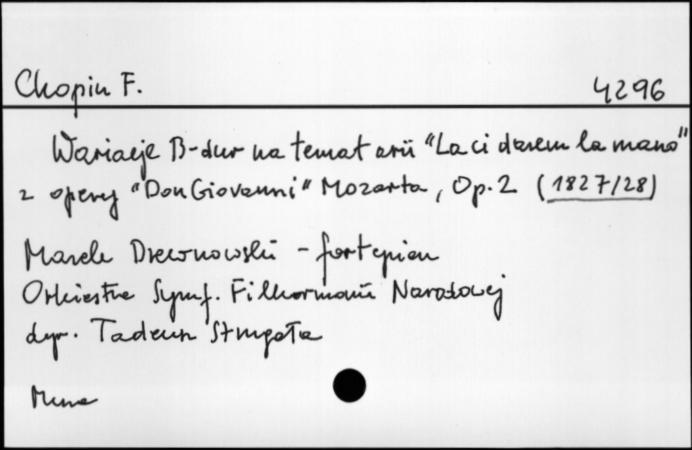 Chopin F. 4296
Wariacje B-dur na temat arii "La ci darem la mano"
z opery "Don Giovanni" Mozarta, Op. 2 (1827/28)
Marek Drewnowski - fortepian
Orkiestra Symf. Filharmonii Narodowej
dyr. Tadeusz Strugała
Muza